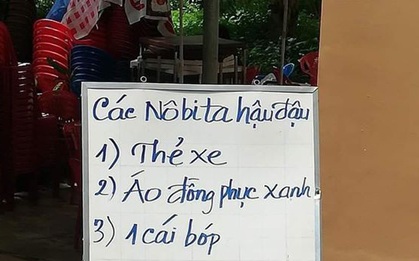 Các Nôbita hậu đậu
1) Thẻ xe
2) Áo đồng phục xanh
3) 1 cái bóp